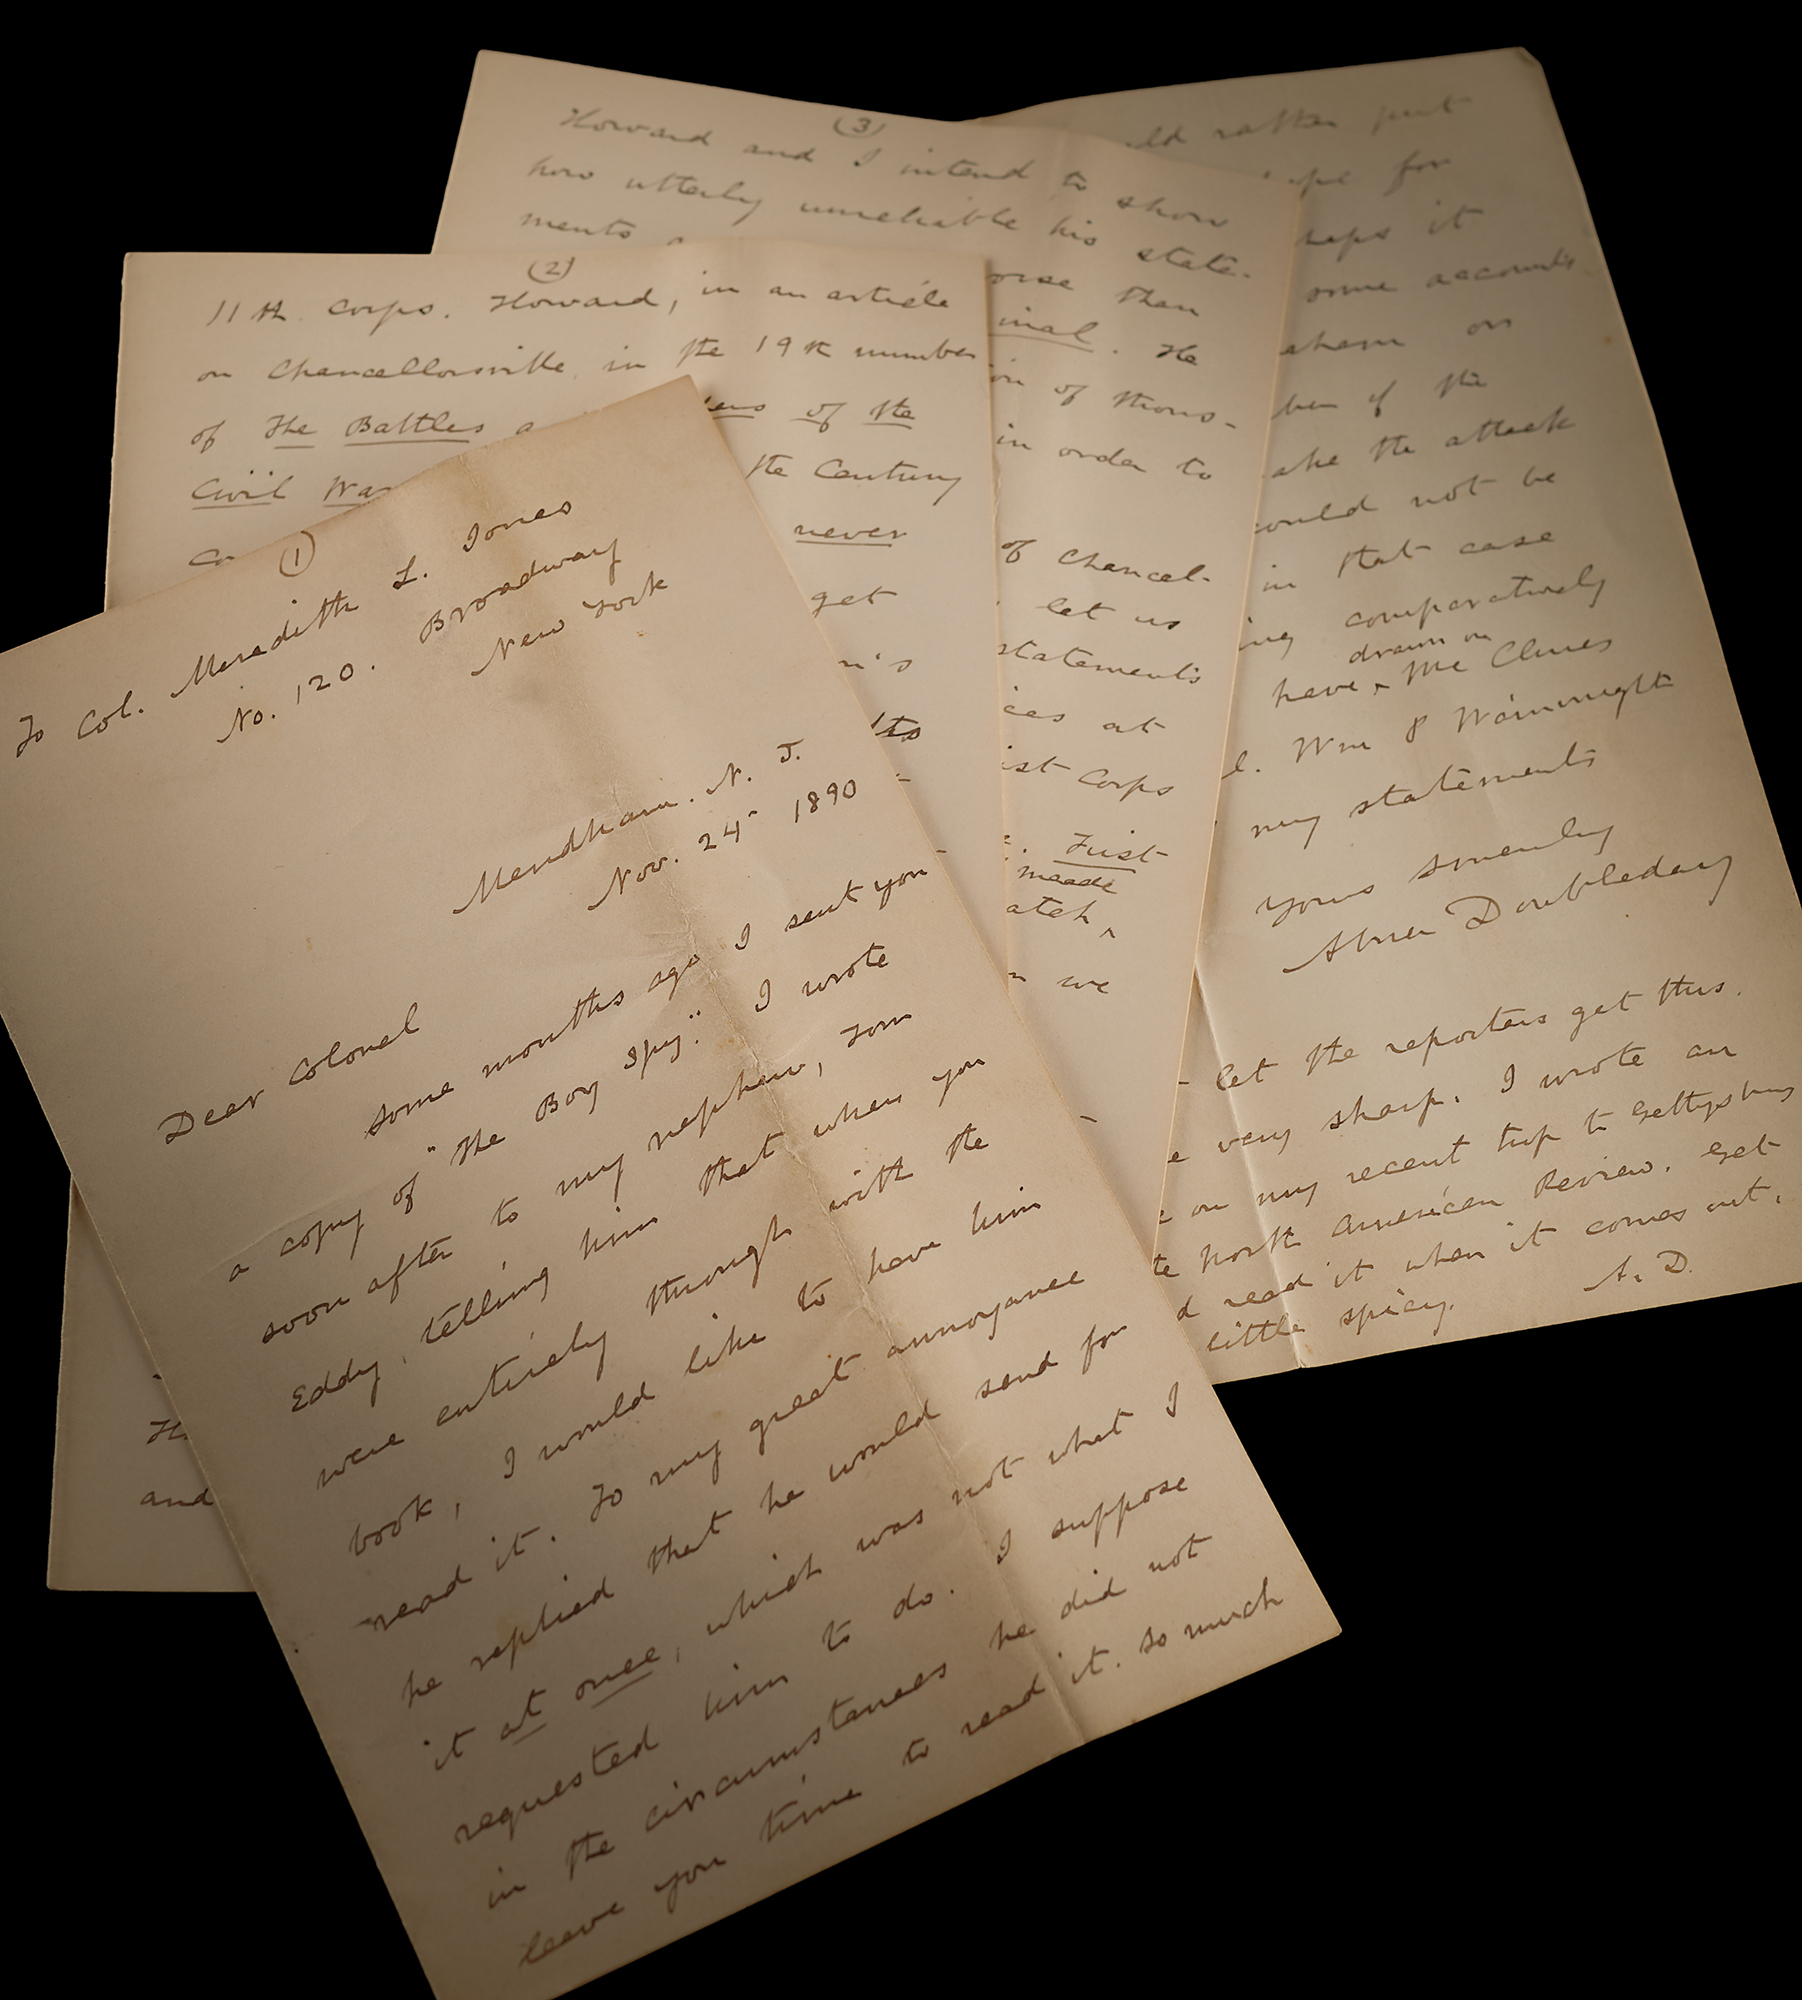 (1)
To Col. Meredith L. Jones
No. 120. Broadway
New York
Mendham. N. J.
Nov. 24 1890
Dear Colonel
Some months ago I sent you
a copy of "The Boy Spy." I wrote
soon after to my nephew, Tom
Eddy, telling him that when you
were entirely through with the
book, I would like to have him
read it. To my great annoyance
he replied that he would send for
it at once, which was not what I
requested him to do. I suppose
in the circumstances he did not
leave you time to read it. So much
(2)
11th Corps. Howard, in an article
on Chancellorsville in the 19th number
of The Battles of the
Civil War the Century
never
get
n's
of
and
(3)
Howard and I intend to show
how utterly unreliable his state-
ments
than
inal. He
of thous-
in order to
of Chancel-
let us
statements
at
Corps
First
Meade
atch,
we
rather put
for
it
some accounts
on
of the
the attack
could not be
in that case
comparatively
drawn on
have ^ Mc Clures
Wm P Wainwright
my statements
Yours sincerely
Abner Doubleday
let the reporters get this.
very sharp. I wrote an
on my recent trip to Gettysburg
North American Review. Get
read it when it comes out.
little spicy. A. D.